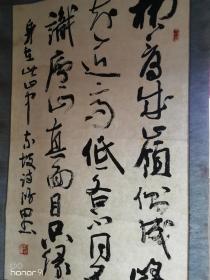 横看成岭侧成峰
远近高低各不同不
识庐山真面目只缘
身在此山中 东坡诗